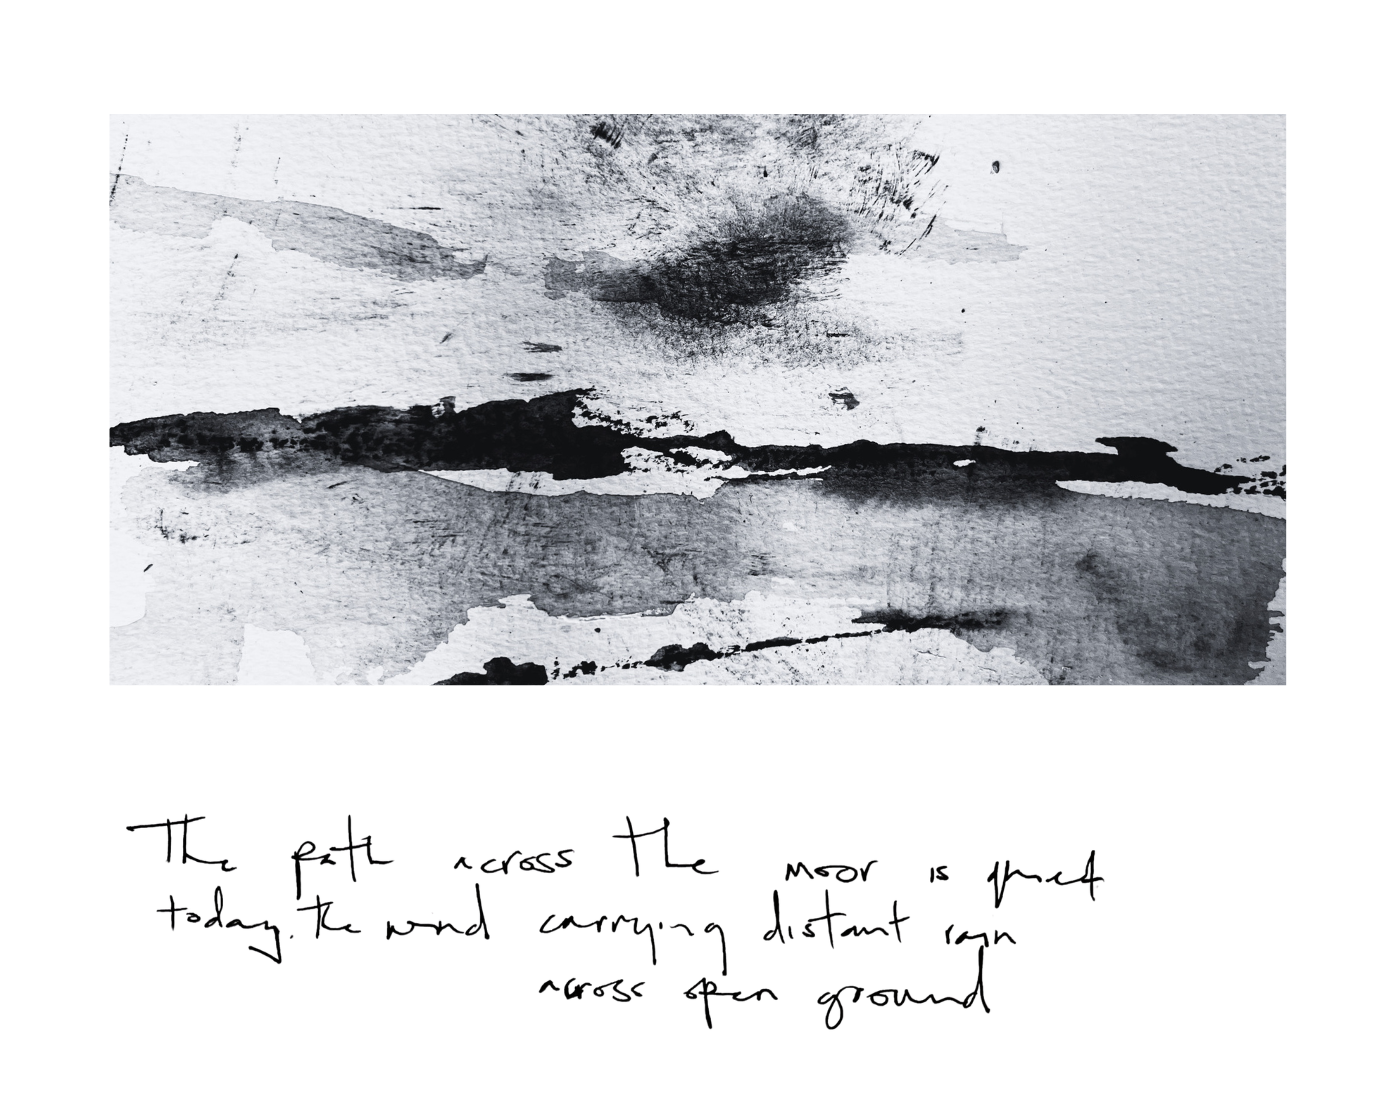 The path across the moor is quiet
today. The wind carrying distant rain
across open ground